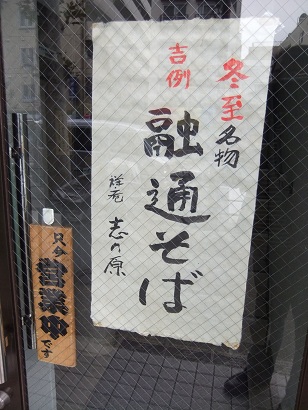 冬至名物
吉例
融通そば
祥庵 志の原
只今
営業中
です